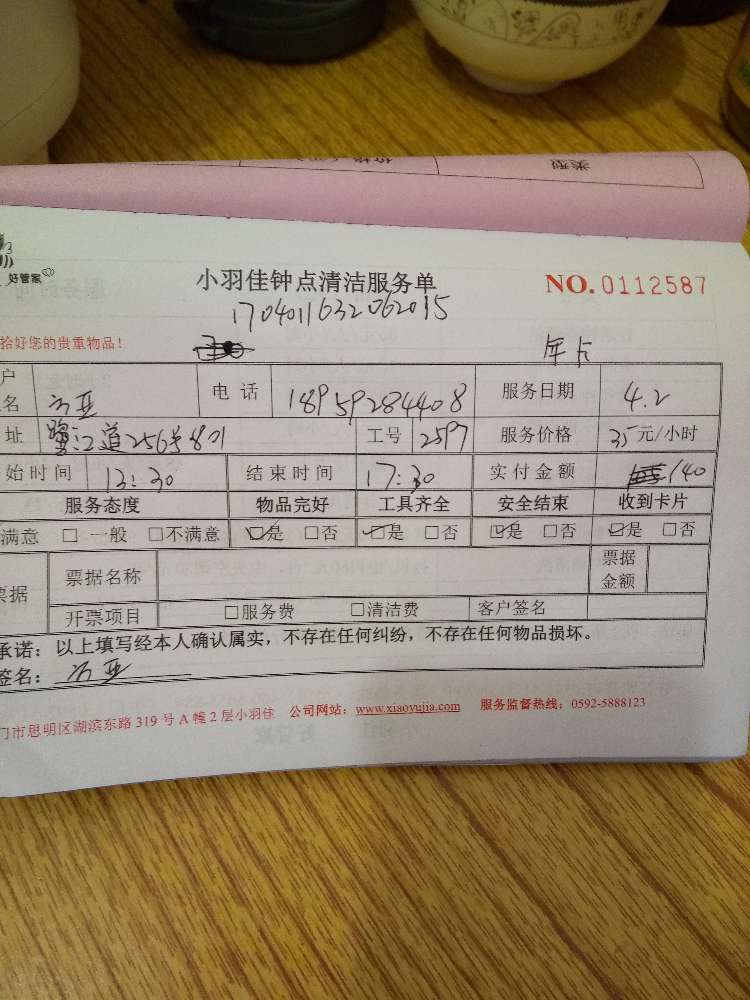 类型
好管家
小羽佳钟点清洁服务单
NO. 0112587
1704011632062015
拾好您的贵重物品!
年卡
户
名
电 话 18959284408 服务日期 4.2
址 鹭江道256号 工号 2597 服务价格 35元/小时
始时间 13:30 结束时间 17:30 实付金额 140
服务态度 物品完好 工具齐全 安全结束 收到卡片
满意 □ 一般 □不满意 ☑是 □否 ☑是 □否 ☑是 □否 ☑是 □否
票据 票据名称 票据金额
开票项目 □服务费 □清洁费 客户签名
承诺:以上填写经本人确认属实,不存在任何纠纷,不存在任何物品损坏。
签名:
门市思明区湖滨东路319号A幢2层小羽佳 公司网站:www.xiaoyujia.com 服务监督热线:0592-5888123